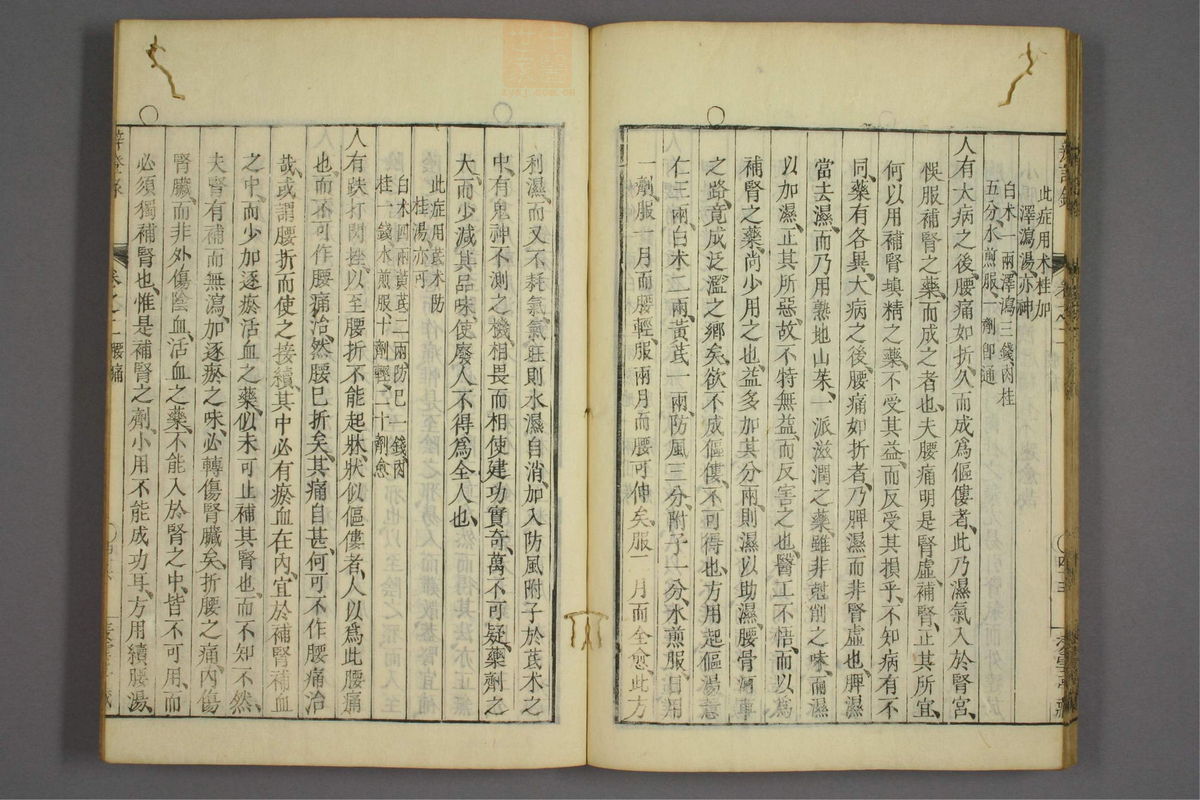 此症用朮桂加
澤瀉湯亦神
白朮一兩澤瀉三錢肉桂
五分水煎服一劑即通
人有大病之後腰痛如折久而成爲傴僂者此乃濕氣入於腎宮
悞服補腎之藥而成之者也夫腰痛明是腎虛補腎正其所宜
何以用補腎塡精之藥不受其益而反受其損乎不知病有不
同藥有各異大病之後腰痛如折者乃脾濕而非腎虛也脾濕
當去濕而乃用熟地山茱一派滋潤之藥雖非剋削之味而濕
以加濕正其所惡故不特無益而反害之也醫工不悟而以爲
補腎之藥尚少用之也益多加其分兩則濕以助濕腰骨河車
之路竟成泛濫之鄉矣欲不成傴僂不可得也方用起傴湯薏
仁三兩白朮二兩黃芪一兩防風三分附子一分水煎服日用
一劑服一月而腰輕服兩月而腰可伸矣服三月而全愈此方
利濕而又不耗氣氣旺則水濕自消加入防風附子於芪朮之
中有鬼神不測之機相畏而相使建功實奇萬不可疑藥劑之
大而少減其品味使廢人不得爲全人也
此症用芪朮防
桂湯亦可
白朮四兩黃芪二兩防己一錢肉
桂一錢水煎服十劑輕二十劑愈
人有跌打閃挫以至腰折不能起牀狀似傴僂者人以爲此腰痛
也而不可作腰痛治然腰已折矣其痛自甚何可不作腰痛治
哉或謂腰折而使之接續其中必有瘀血在內宜於補腎補血
之中而少加逐瘀活血之藥似未可止補其腎也而不知不然
夫腎有補而無瀉加逐瘀之味必轉傷腎臟矣折腰之痛內傷
腎臟而非外傷陰血活血之藥不能入於腎之中皆不可用而
必須獨補腎也惟是補腎之劑小用不能成功耳方用續腰湯
卷之二腰痛